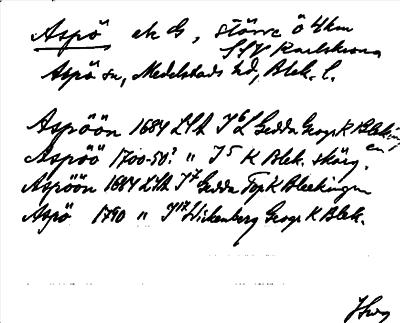 Aspö ek G, större ö 4 km
SSV Karlskrona
Aspö sn, Medelstads hd, Blek. l.
Aspöön 1684 LSA I6 L Gedda Geogr K Bleking
Aspöö 1700-50? " I5 K Blek. skärg.
Aspöön 1684 LSA I7 Gedda Top K Bleckingen
Aspö 1790 " I17 Wickenberg Geogr K Blek.